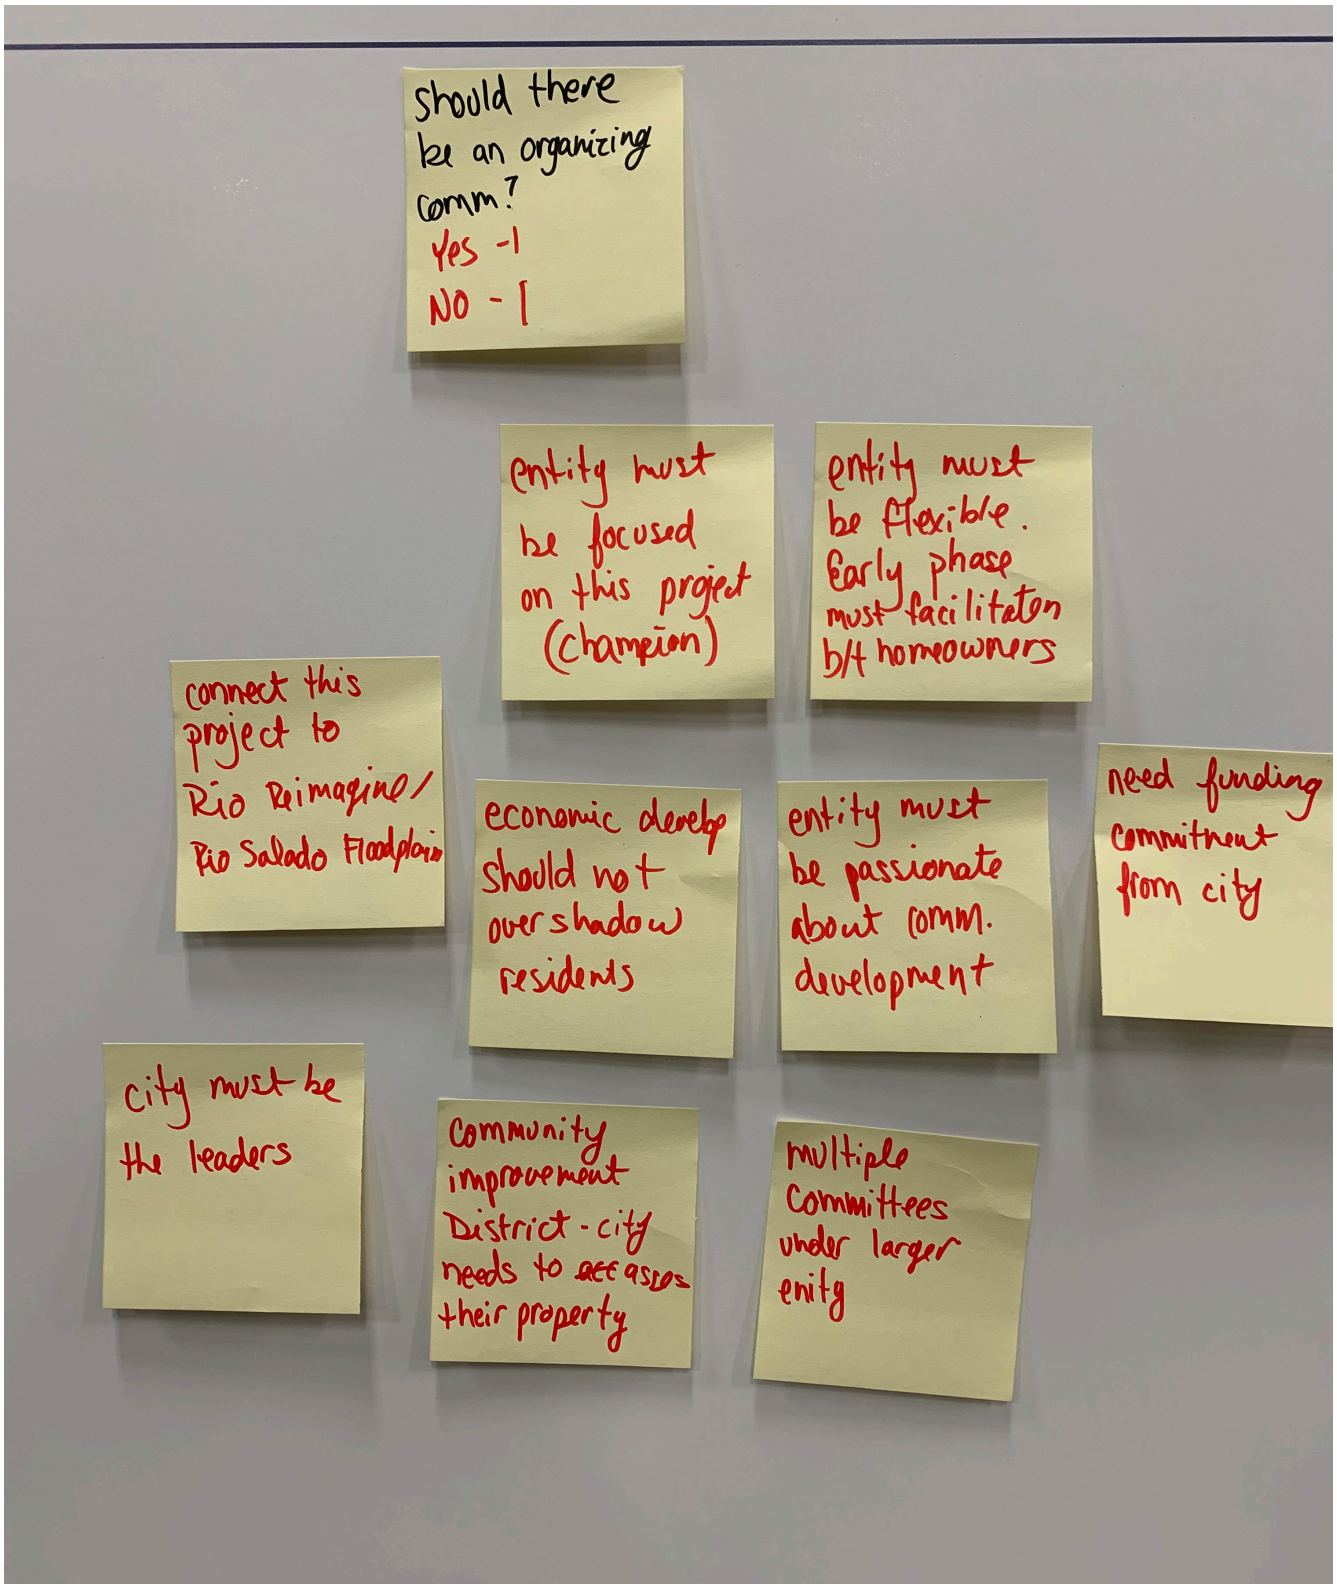 Should there
be an organizing
comm?
Yes -1
NO - 1
entity must
be focused
on this project
(champion)
entity must
be flexible.
Early phase
must facilitaton
b/t homeowners
connect this
project to
Rio Reimagine/
Rio Salado Floodplain
economic develop
should not
overshadow
residents
entity must
be passionate
about comm.
development
need funding
commitment
from city
city must be
the leaders
community
improvement
District - city
needs to
their property
multiple
committees
under larger
enity